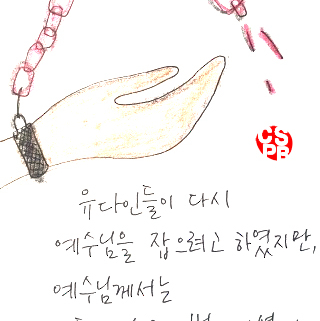 CS
PB
유다인들이 다시
예수님을 잡으려고 하였지만,
예수님께서는